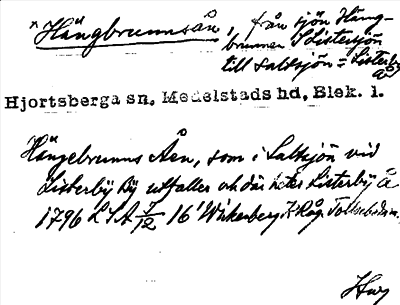 * Hängbrunnsån, från sjön Häng-
brunnen S Listersjön
till saltsjön = Listerby
å
Hjortsberga sn, Medelstads hd, Blek. l.
Hängebrunns Åen, som i Saltsjön vid
Listerby By utfaller och där heter Listerby Å
1796 LSA 7/12 16' Wirkerberg